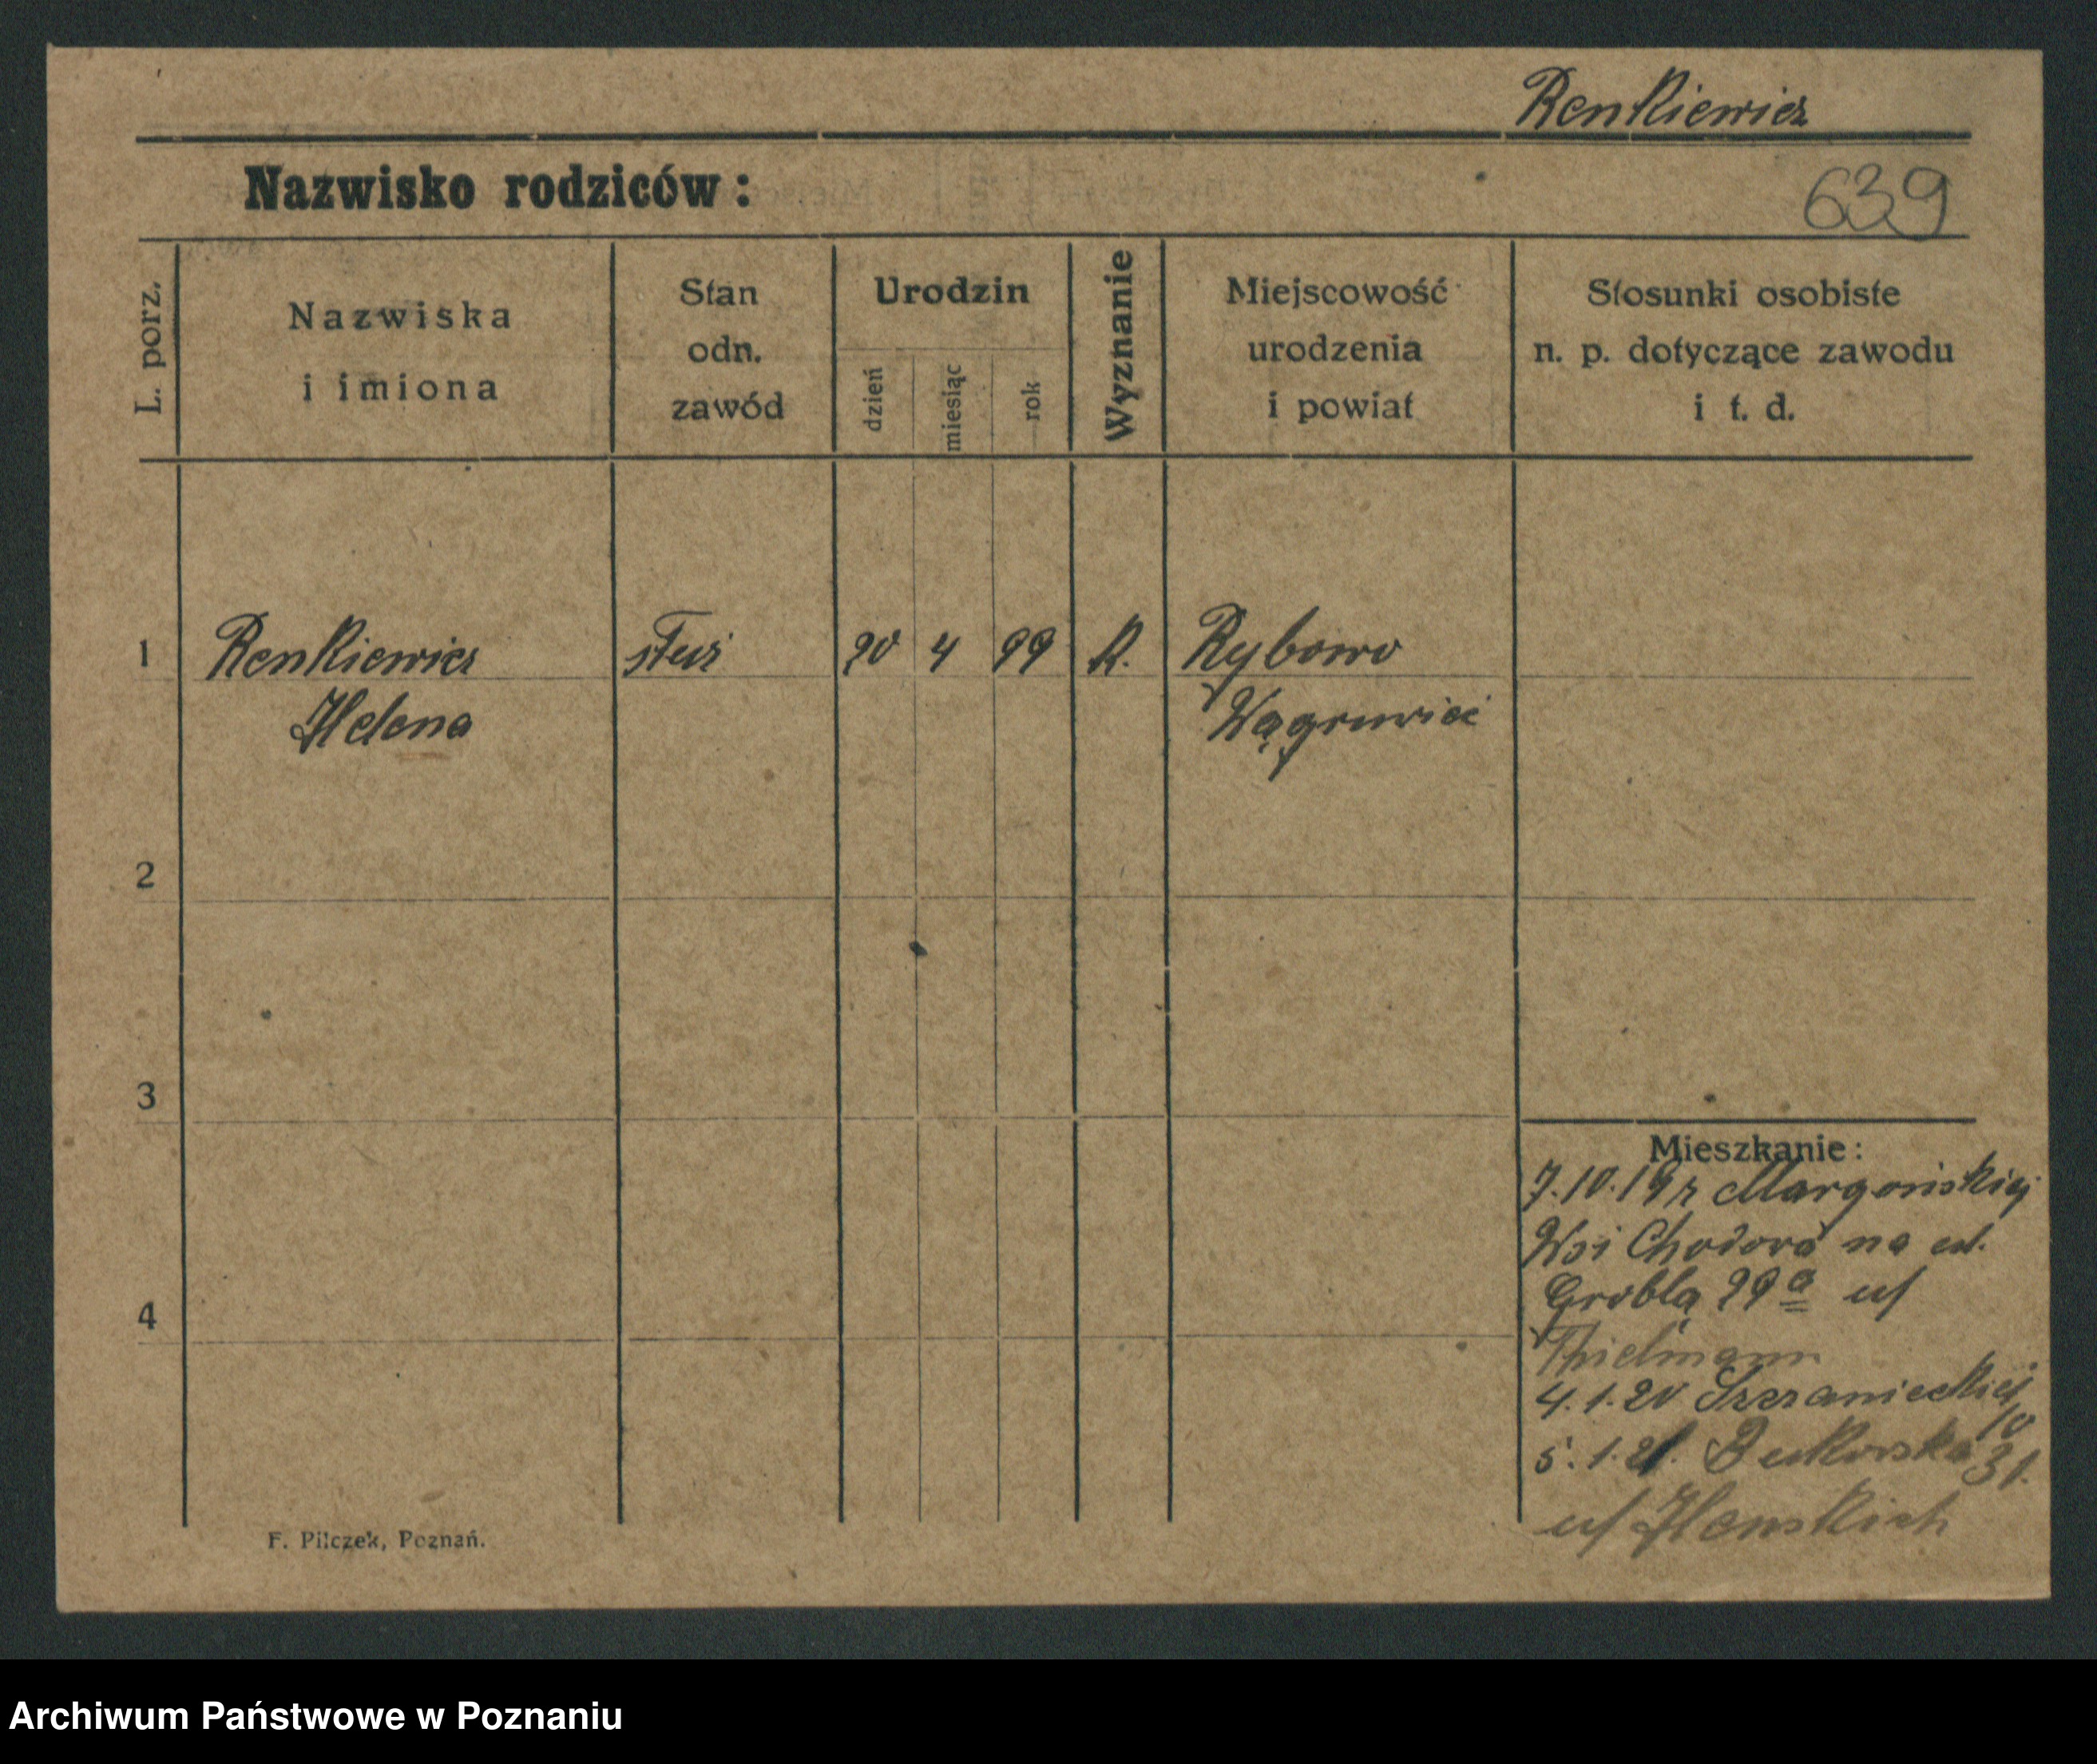 Renkiewicz
Nazwisko rodziców:
639
L. porz.
Nazwiska
i imiona
Stan
odn.
zawód
Urodzin
dzień
miesiąc
rok
Wyznanie
Miejscowość
urodzenia
i powiat
Stosunki osobiste
n. p. dotyczące zawodu
i t. d.
1 Renkiewicz służ 20 4 99 K. Rybowo
Helena Wągrowiec
2
3
4
Mieszkanie:
7.10.19 z Margonińskiej
Wsi Chodź na ul.
Grobla 29a u/
Thielmann
4.1.20 Szczanieckiej
10
5.1.21. Bukowska 31.
u/
F. Pilczek, Poznań.
Archiwum Państwowe w Poznaniu